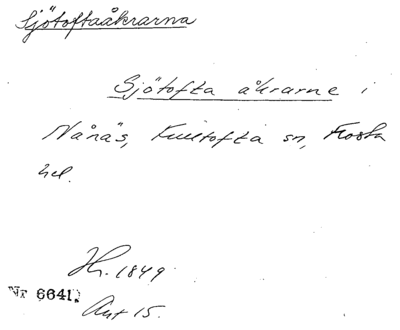 Sjötoftaåkrarna
Sjötofta åkrarne i
Nånäs, Kulltofta sn, Frosta
hd.
Hr. 1849
Nr 6641.
Akt 15.